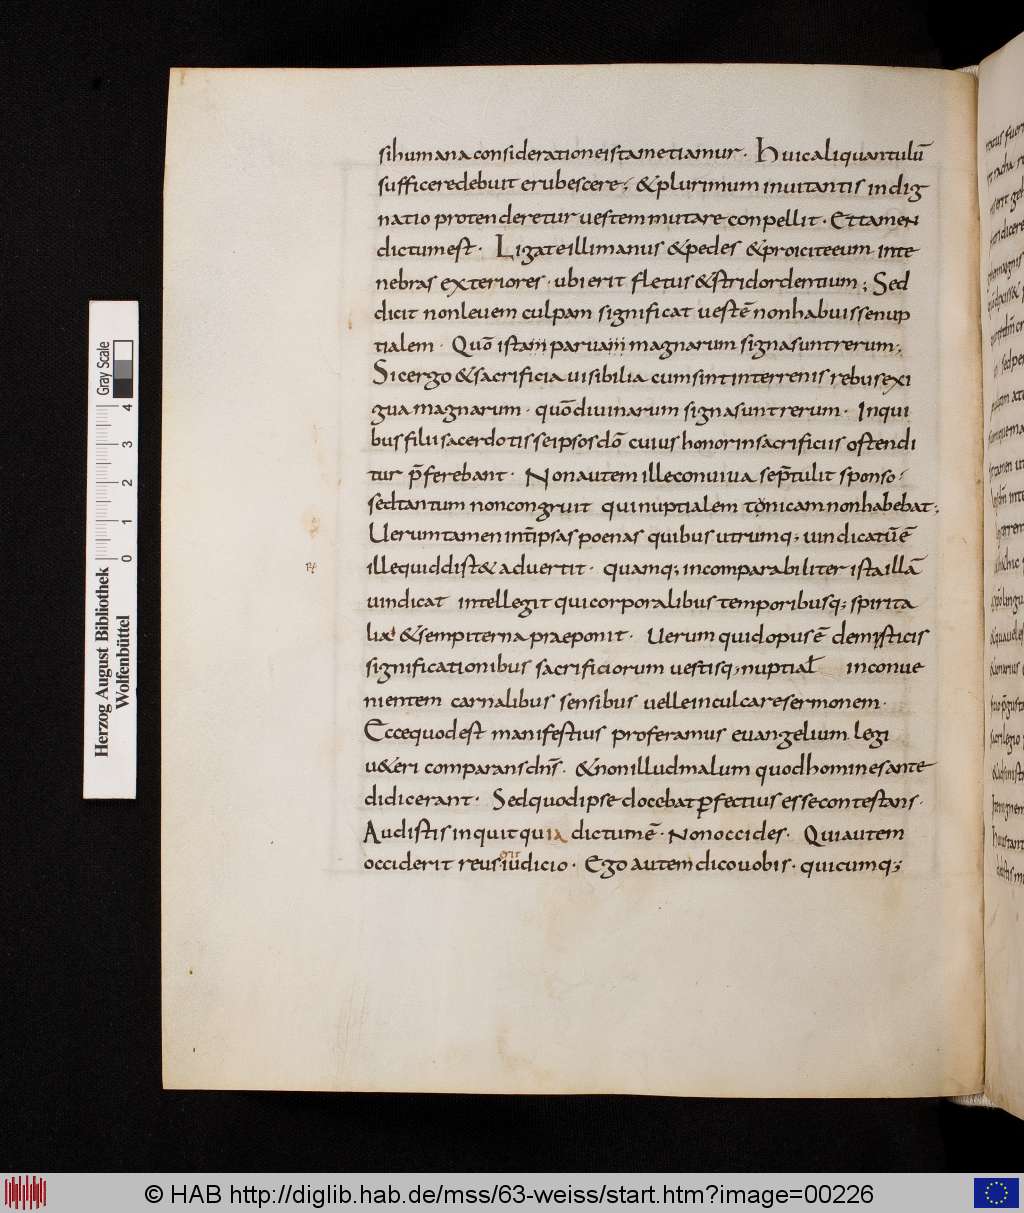 sihumanaconsiderationeistametiamur. Huicaliquantulū
sufficeredebuit erubescere; &plurimum inuitantis indig
natio protenderetur uestemmutare conpellit. Ettamen
dictumest. Ligateillimanus &pedes &proiciteeum inte
nebras exteriores. ubierit fletus &stridordentium; Sed
dicit nonleuem culpam significat uestē nonhabuissenup
tialem. Quō istam paruam magnarum signasuntrerum;
Sicergo &sacrificia uisibilia cumsintinterrenis rebusexi
gua magnarum. quōdiuinarum signasuntrerum. Inqui
busfiliisacerdotisseipsosdō cuius honorinsacrificiis ostendi
tur p̄ferebant. Nonautem illeconuiua sep̄tulit sponso.
sedtantum noncongruit quinuptialem tonicamnonhabebat;
Uerumtamen int̄ipsas poenas quibus utrumq; uindicatūē
illequiddist& aduertit. quamq; incomparabiliter istaillā
uindicat intellegit quicorporalibus temporibusq; spirita
liae &sempiterna praeponit. Uerum quidopusē demisticis
significationibus sacrificiorum uestisq; nuptial̄ inconue
nientem carnalibus sensibus uelleinculcaresermonem.
Eccequodest manifestius proferamus euangelium legi
u&eri comparansdn̄s. &nonilludmalum quodhominesante
didicerant. Sedquodipse docebat ꝑfectius essecontestans.
Audistis inquit quia dictumē. Nonoccides. Quiautem
occiderit reus iudicio. Ego autem dicouobis. quicumq;
Herzog August Bibliothek
Wolfenbüttel
0 1 2 3 4
Gray Scale
© HAB http://diglib.hab.de/mss/63-weiss/start.htm?image=00226